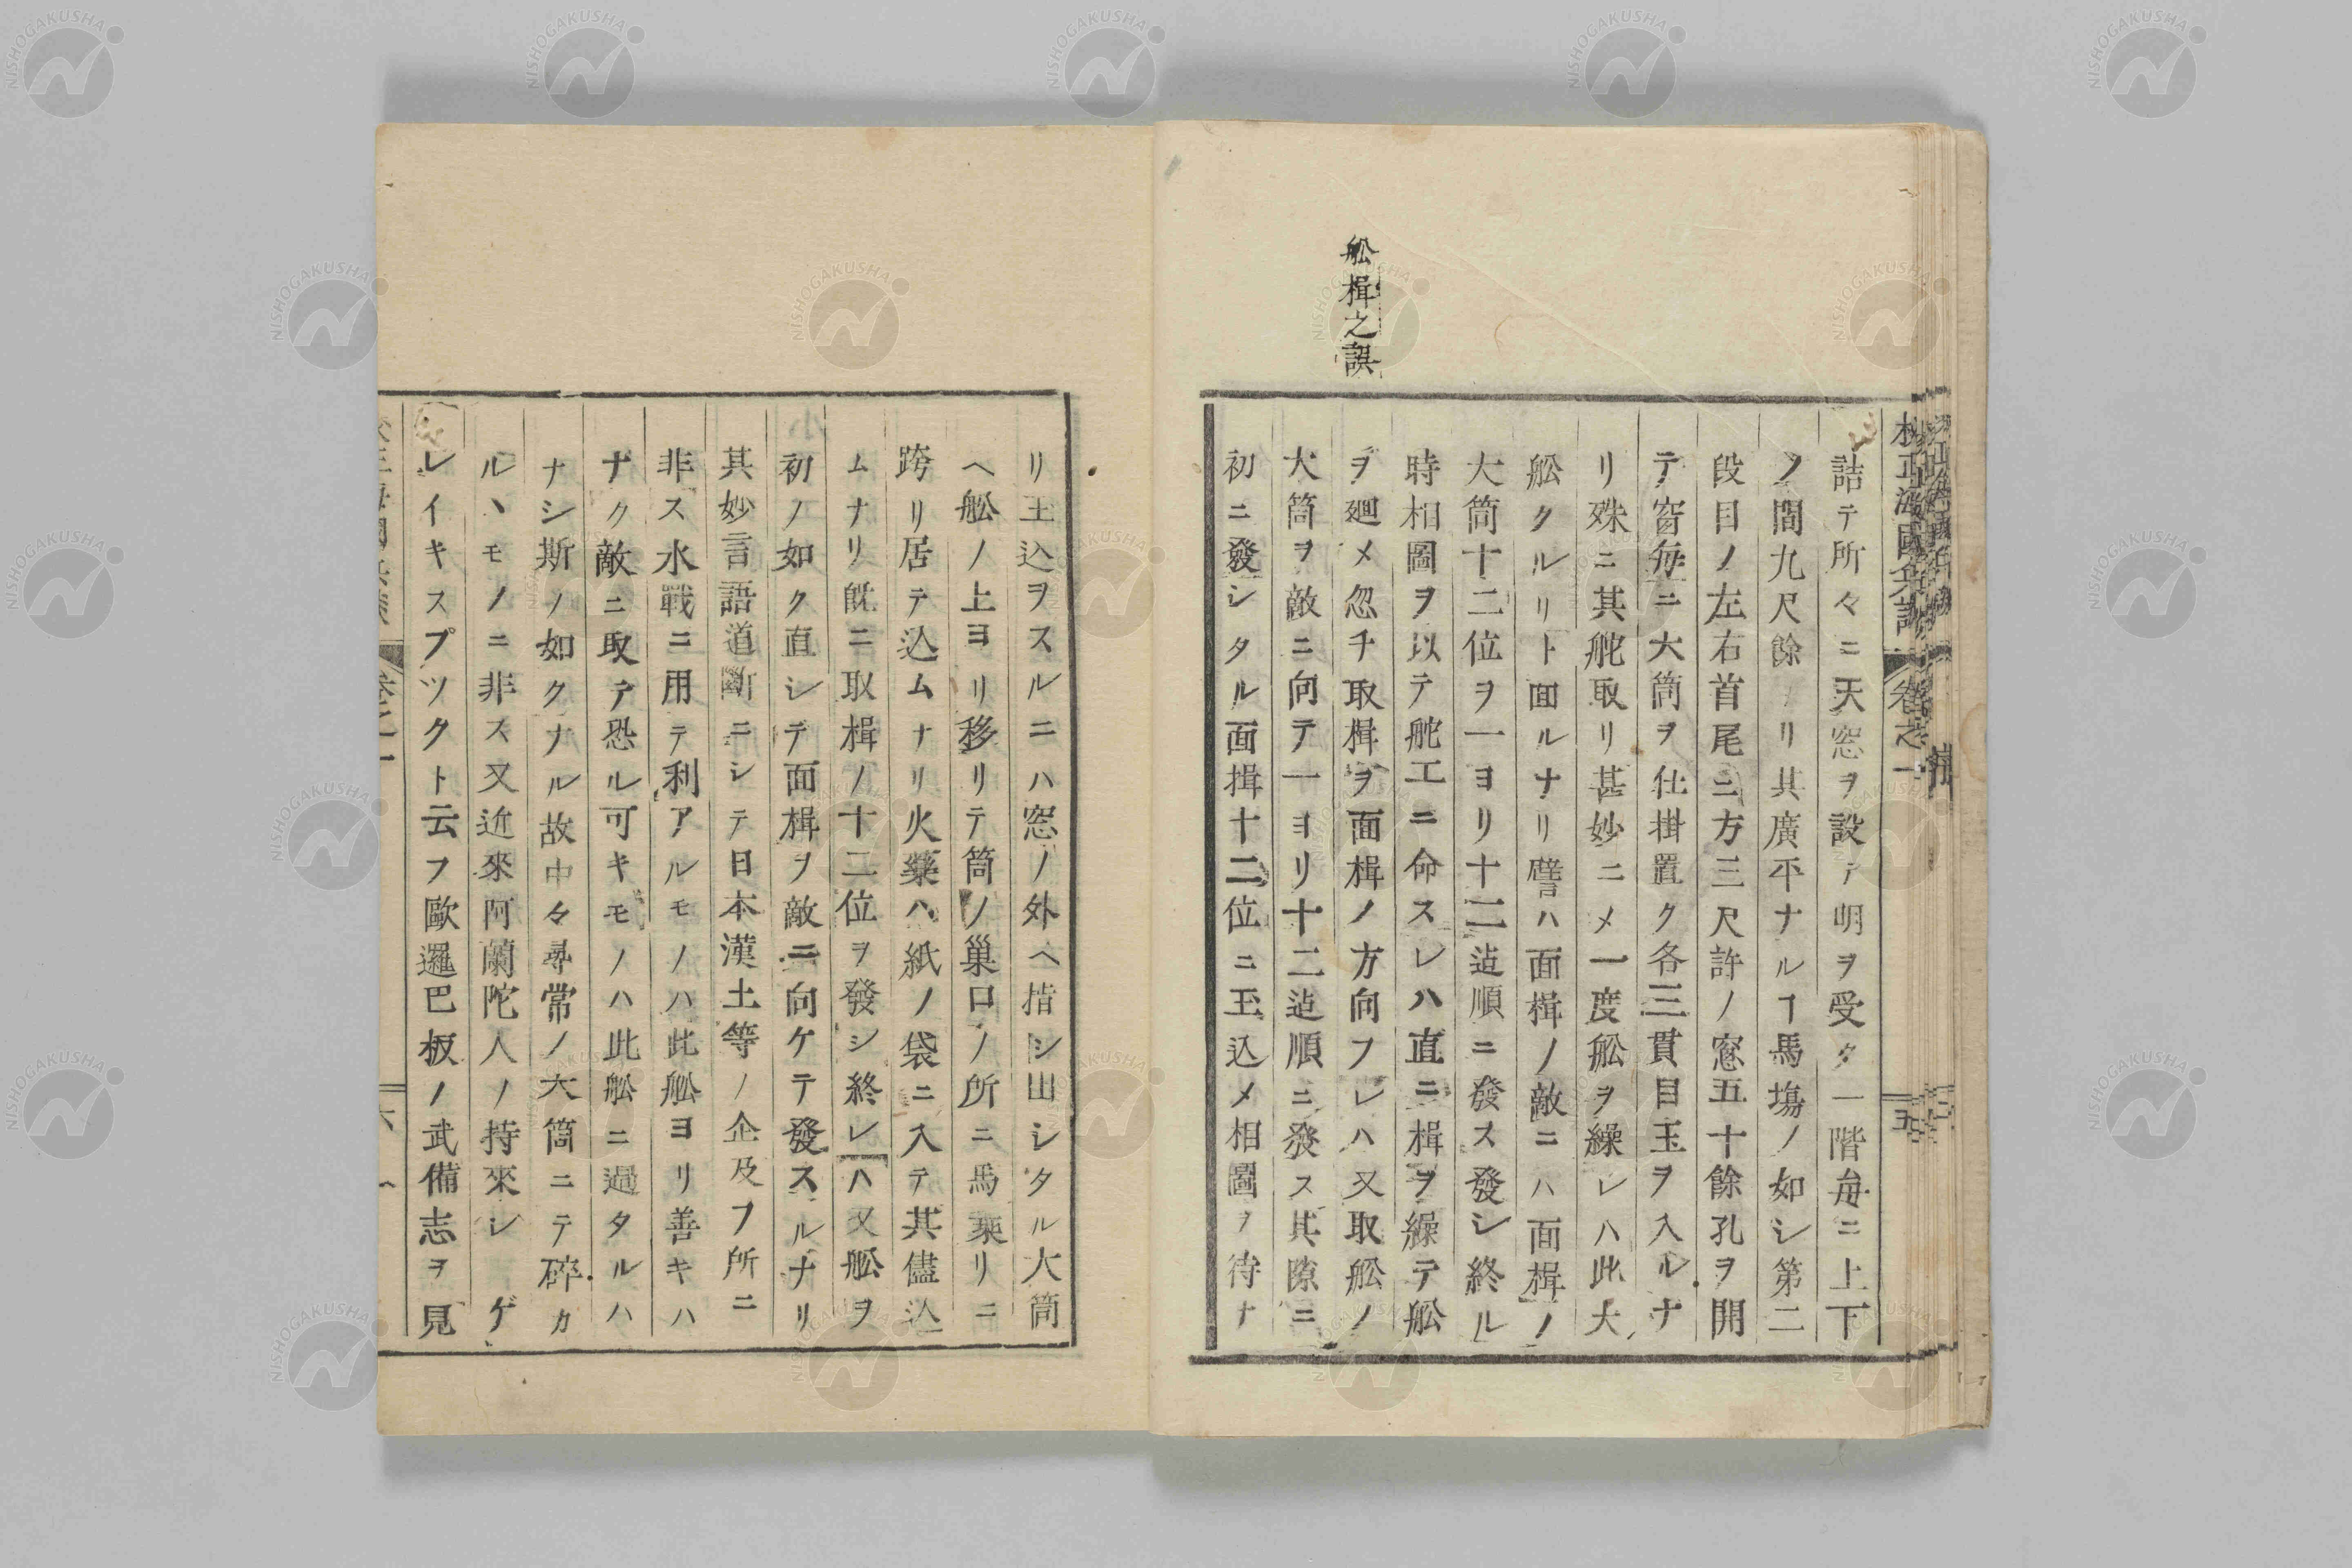 舩楫之誤
詰テ所々ニ天窓ヲ設テ明ヲ受タ一階毎ニ上下
ノ間九尺餘アリ其廣平ナルヿ馬塲ノ如シ第二
段目ノ左右首尾ニ方三尺許ノ窓五十餘孔ヲ開
テ窓毎ニ大筒ヲ仕掛置ク各三貫目玉ヲ入ルナ
リ殊ニ其舵取リ甚妙ニメ一度舩ヲ繰レハ此大
舩クルリト面ルナリ譬ハ面楫ノ敵ニハ面楫ノ
大筒十二位ヲ一ヨリ十二迠順ニ發ス發シ終ル
時相圖ヲ以テ舵工ニ命スレハ直ニ楫ヲ繰テ舩
ヲ廻メ忽チ取楫ヲ面楫ノ方向フレハ又取舩ノ
大筒ヲ敵ニ向テ一ヨリ十二迠順ニ發ス其隙ニ
初ニ發シタル面揖十二位ニ玉込メ相圖ヲ待ナ
リ玉込ヲスルニハ窓ノ外ヘ指シ出シタル大筒
ヘ舩ノ上ヨリ移リテ筒ノ巢口ノ所ニ馬乗リニ
跨リ居テ込ムナリ火藥ハ紙ノ袋ニ入テ其儘込
ムナリ既ニ取楫ノ十二位ヲ發シ終レハ又舩ヲ
初ノ如ク直シテ面楫ヲ敵ニ向ケテ發スルナリ
其妙言語道斷ニシテ日本漢土等ノ企及フ所ニ
非ス水戰ニ用テ利アルモノハ此舩ヨリ善キハ
ナク敵ニ取テ恐ル可キモノハ此舩ニ過タルハ
ナシ斯ノ如クナル故中々尋常ノ大筒ニテ碎カ
ルヽモノニ非ス又近來阿蘭陀人ノ持來シ ゲ
レイキスプツクト云フ歐邏巴板ノ武備志ヲ見